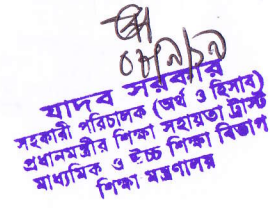 যাদব সরকার
সহকারী পরিচালক (অর্থ ও হিসাব)
প্রধানমন্ত্রীর শিক্ষা সহায়তা ট্রাস্ট
মাধ্যমিক ও উচ্চ শিক্ষা বিভাগ
শিক্ষা মন্ত্রণালয়